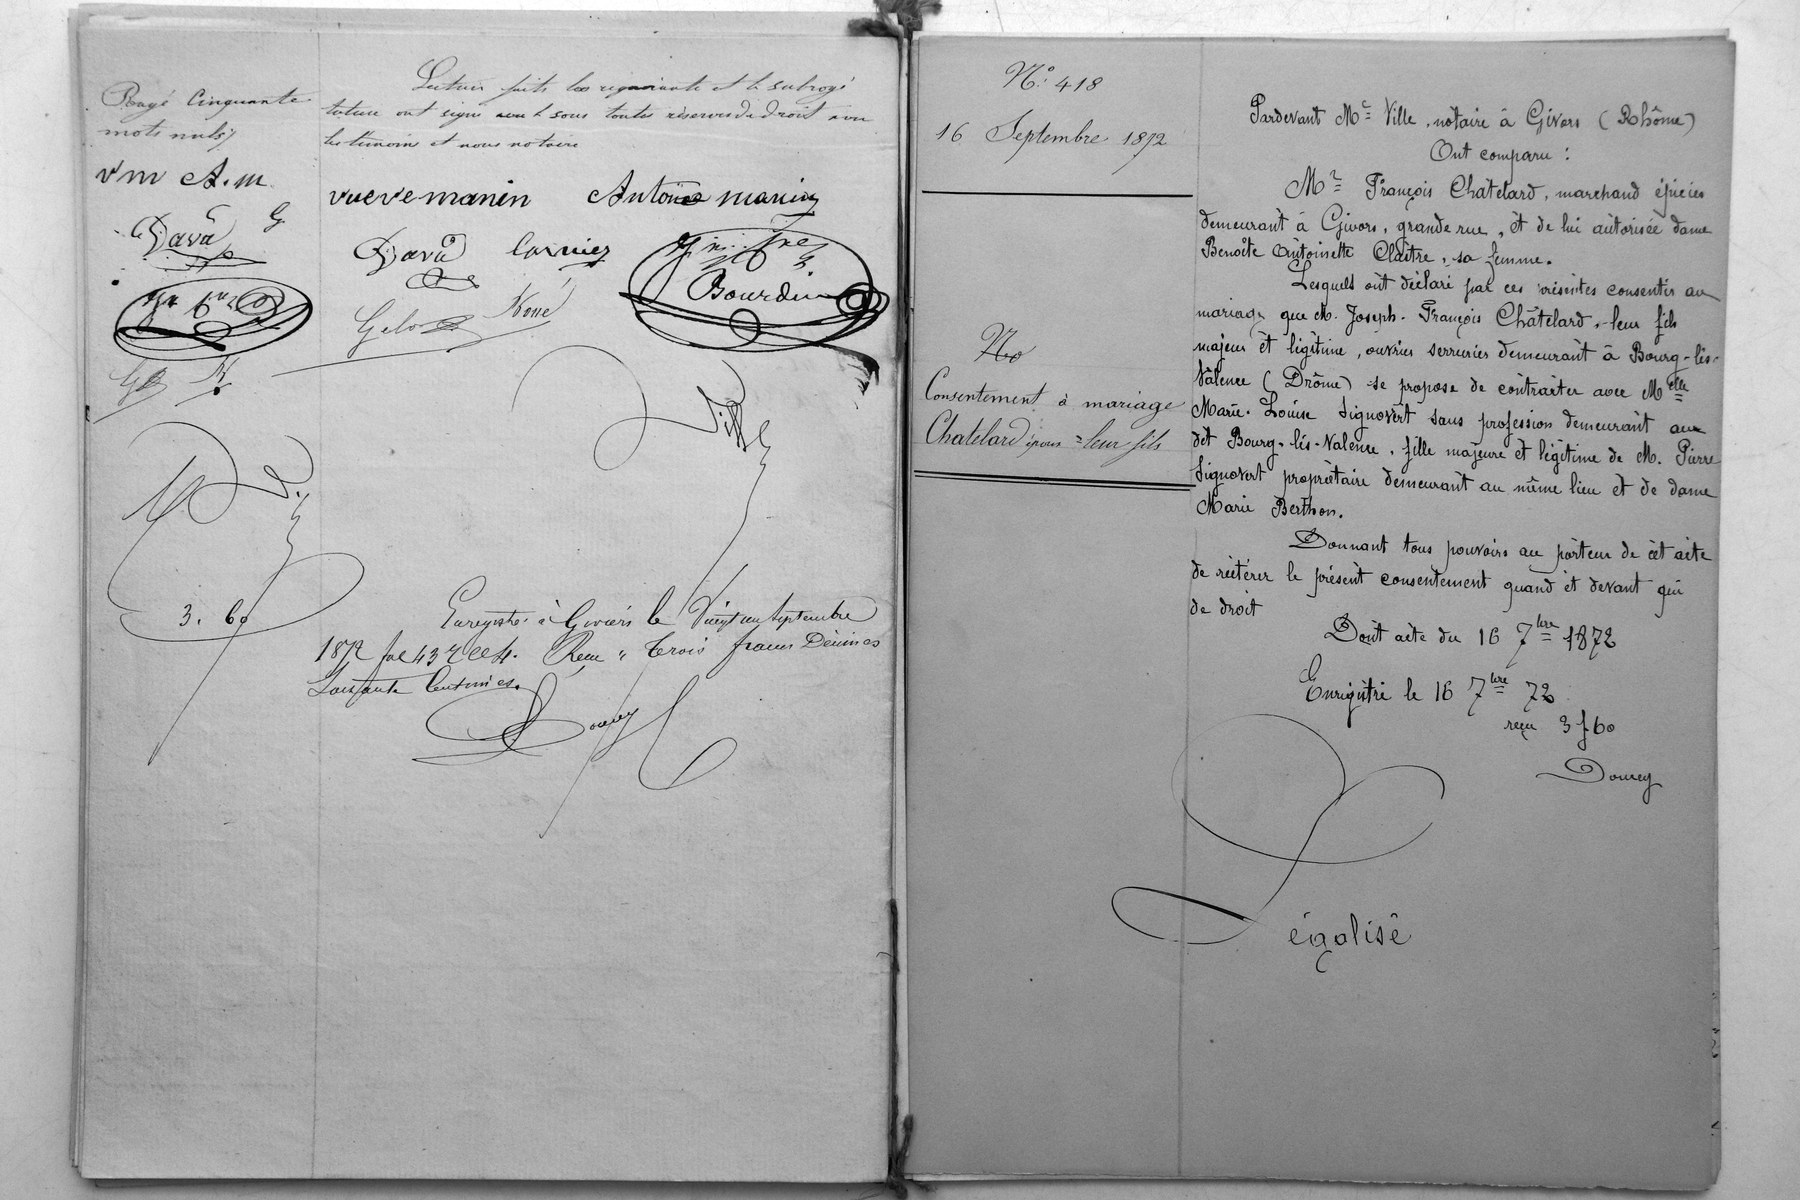 Rayé Cinquante
mots nuls
V m A. m.
Dava G
G N
3. 60
Lecture faite les requérants et le subrogé
tuteur ont signé sous toutes réserves de droit avec
les témoins et nous notaire
vueve manin Antoine manin
Dava Carnier
Bourdin
Gelo
Ville
Enregistré à Givors le Vingt un Septembre
1872 fol 43 Reçu Trois francs Décimes
Soixante Centimes.
Dourey
N° 418
16 Septembre 1872
No
Consentement à mariage
Chatelard époux = leur fils
Pardevant Me Ville, notaire à Givors (Rhône)
Ont comparu :
Mr François Châtelard, marchand épicier
demeurant à Givors, grande rue, et de lui autorisée dame
Benoîte Antoinette Claître, sa femme.
Lesquels ont déclaré par ces présentes consentir au
mariage que M. Joseph-François Châtelard, leur fils
majeur et légitime, ouvrier serrurier demeurant à Bourg-lès-
Valence (Drôme) se propose de contracter avec Melle
Marie-Louise Signovert sans profession demeurant au
dit Bourg-lès-Valence, fille majeure et légitime de M. Pierre
Signovert propriétaire demeurant au même lieu et de dame
Marie Berthon.
Donnant tous pouvoirs au porteur de cet acte
de réitérer le présent consentement quand et devant qui
de droit
Dont acte du 16 7bre 1872
Enrigitré le 16 7bre 72
reçu 3f60
Dourey
Légalisé